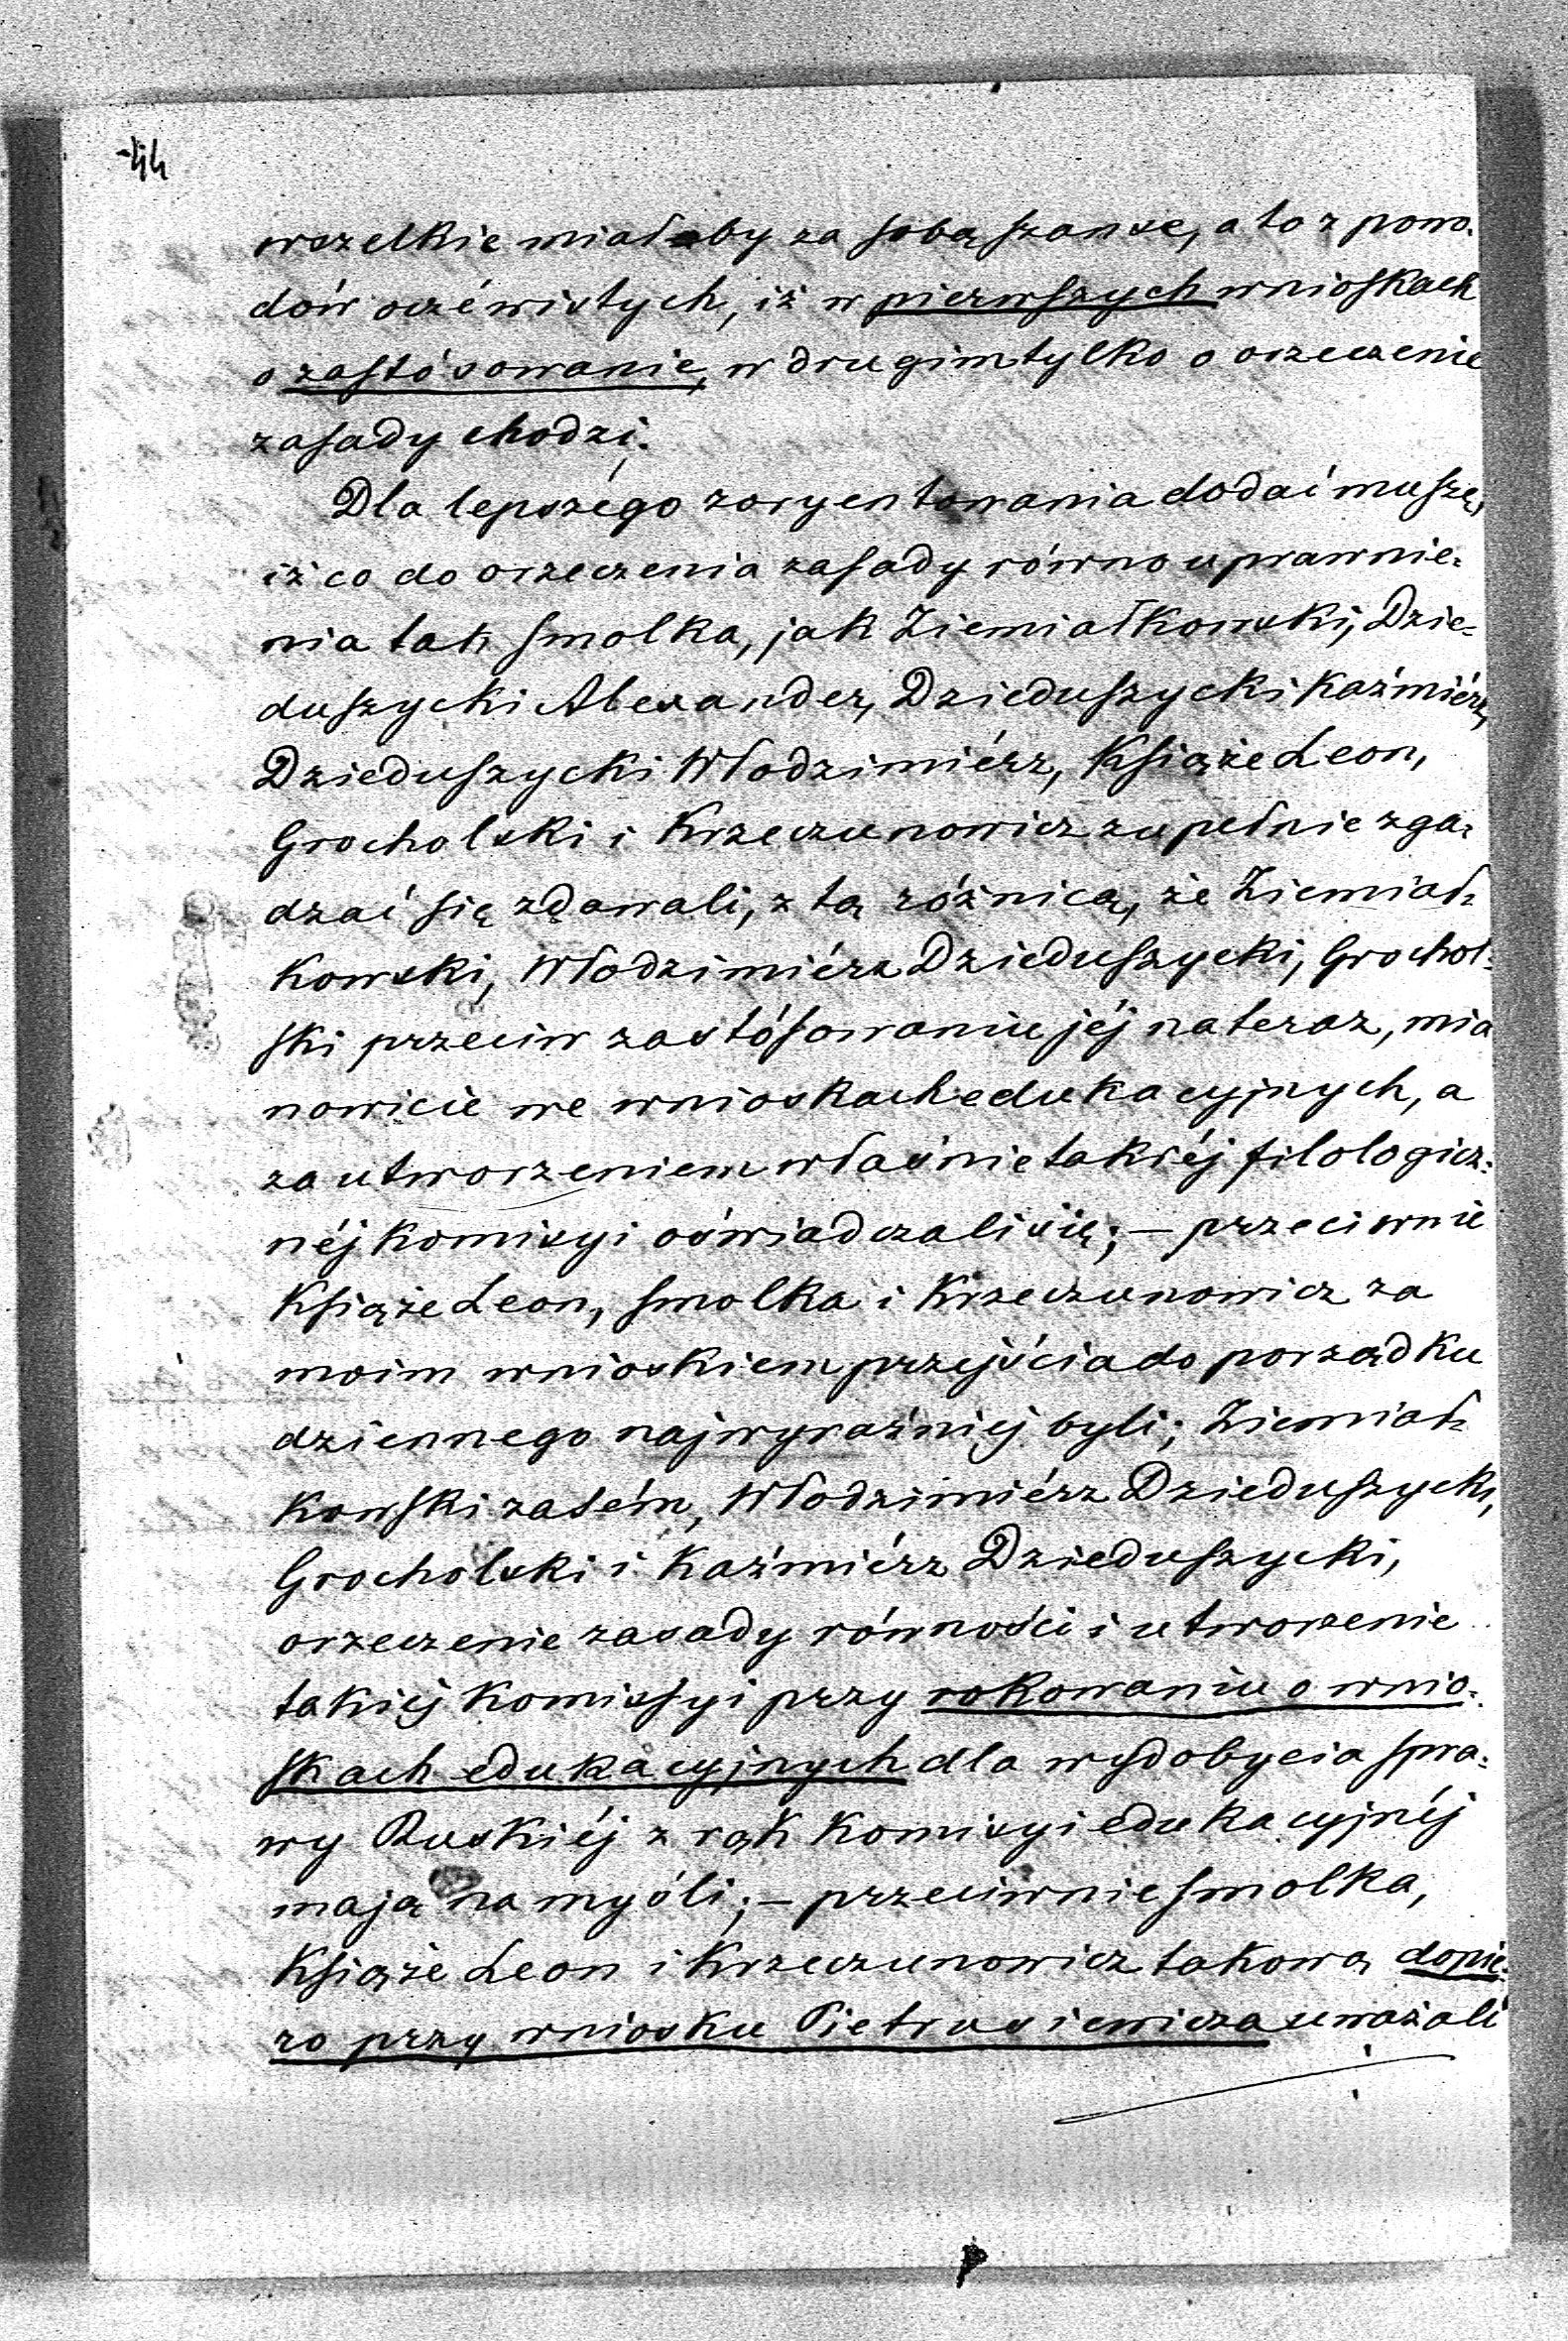 44
wszelkie miałaby za sobą szanse, a to z powo-
dów oczéwistych, iż w pierwszych wnioskach
o zastósowanie, w drugim tylko o orzeczenie
zasady chodzi.
Dla lepszego zoryentowania dodać muszę,
iż co do orzeczenia zasady równouprawnie-
nia tak Smolka, jak Ziemiałkowski, Dzie-
duszycki Alexander, Dzieduszycki Kaźmiérz,
Dzieduszycki Włodzimiérz, Książe Leon,
Grocholski i Krzeczunowicz zupełnie zga-
dzać się zdawali, z tą różnicą, że Ziemiał-
kowski, Włodzimiérz Dzieduszycki, Grochol-
ski przeciw zastósowaniu jéj na teraz, mia
nowicie we wnioskach edukacyjnych, a
za utworzeniem właśnie takiéj filologicz-
néj komisyi oświadczali się; – przeciwnie
Książe Leon, Smolka i Krzeczunowicz za
moim wnioskiem przejścia do porządku
dziennego najwyraźniej byli; Ziemiał-
kowski zatém, Włodzimiérz Dzieduszycki,
Grocholski i Kaźmiérz Dzieduszycki,
orzeczenie zasady równości i utworzenie
takiéj Komissyi przy rokowaniu o wnio-
skach edukacyjnych dla wydobycia spra-
wy Ruskiéj z rąk Komisyi edukacyjnéj
mają na myśli; – przeciwnie Smolka,
Książe Leon i Krzeczunowicz takową dopie-
ro przy wniosku Pietrusiewicza uważali